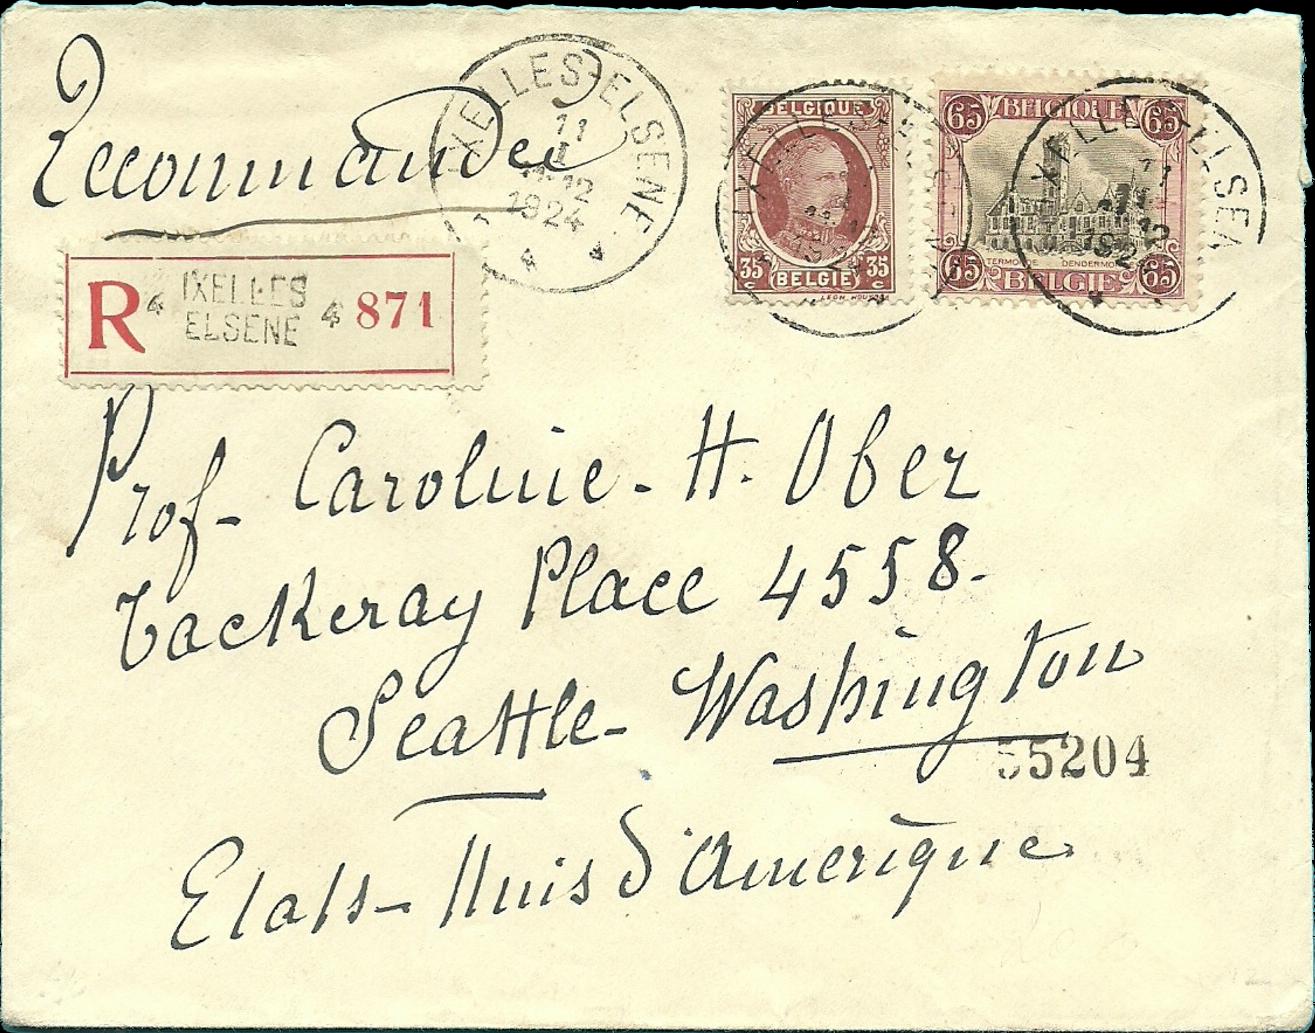 Recommandée
IXELLES-ELSENE
11
11-12
1924
BELGIQUE
35 35
BELGIË
LEON HOUYOUX
65 BELGIQUE 65
TERMONDE DENDERMONDE
65 BELGIË 65
R 4 IXELLES 4 871
ELSENE
Prof- Caroline- H. Ober
Tackeray Place 4558-
Seattle- Washington
55204
Etats-Unis d'Amerique